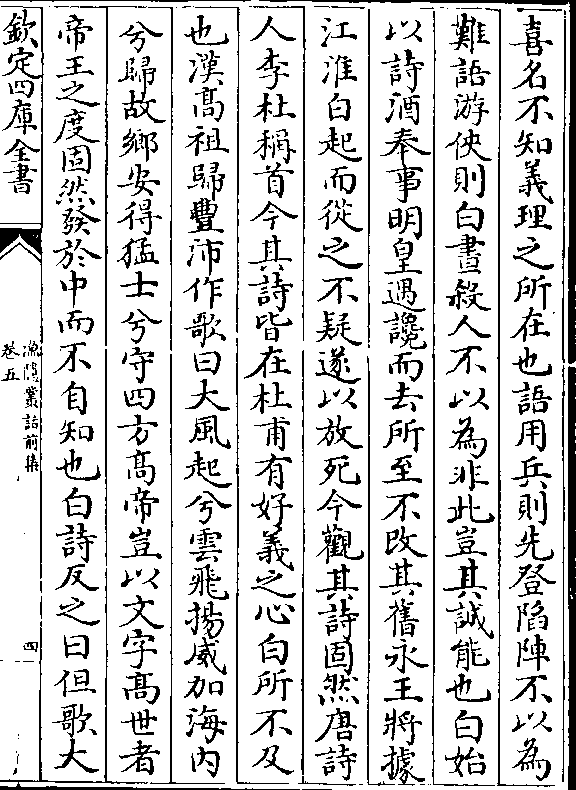 喜名不知義理之所在也語用兵則先登陷陣不以為
難語游俠則白晝殺人不以為非此豈其誠能也白始
以詩酒奉事明皇遇讒而去所至不改其舊永王將據
江淮白起而從之不疑遂以放死今觀其詩固然唐詩
人李杜稱首今其詩皆在杜甫有好義之心白所不及
也漢高祖歸豐沛作歌曰大風起兮雲飛揚威加海內
兮歸故鄉安得猛士兮守四方高帝豈以文字高世者
帝王之度固然發於中而不自知也白詩反之曰但歌大
欽定四庫全書
漁隱叢話前集
卷五
四